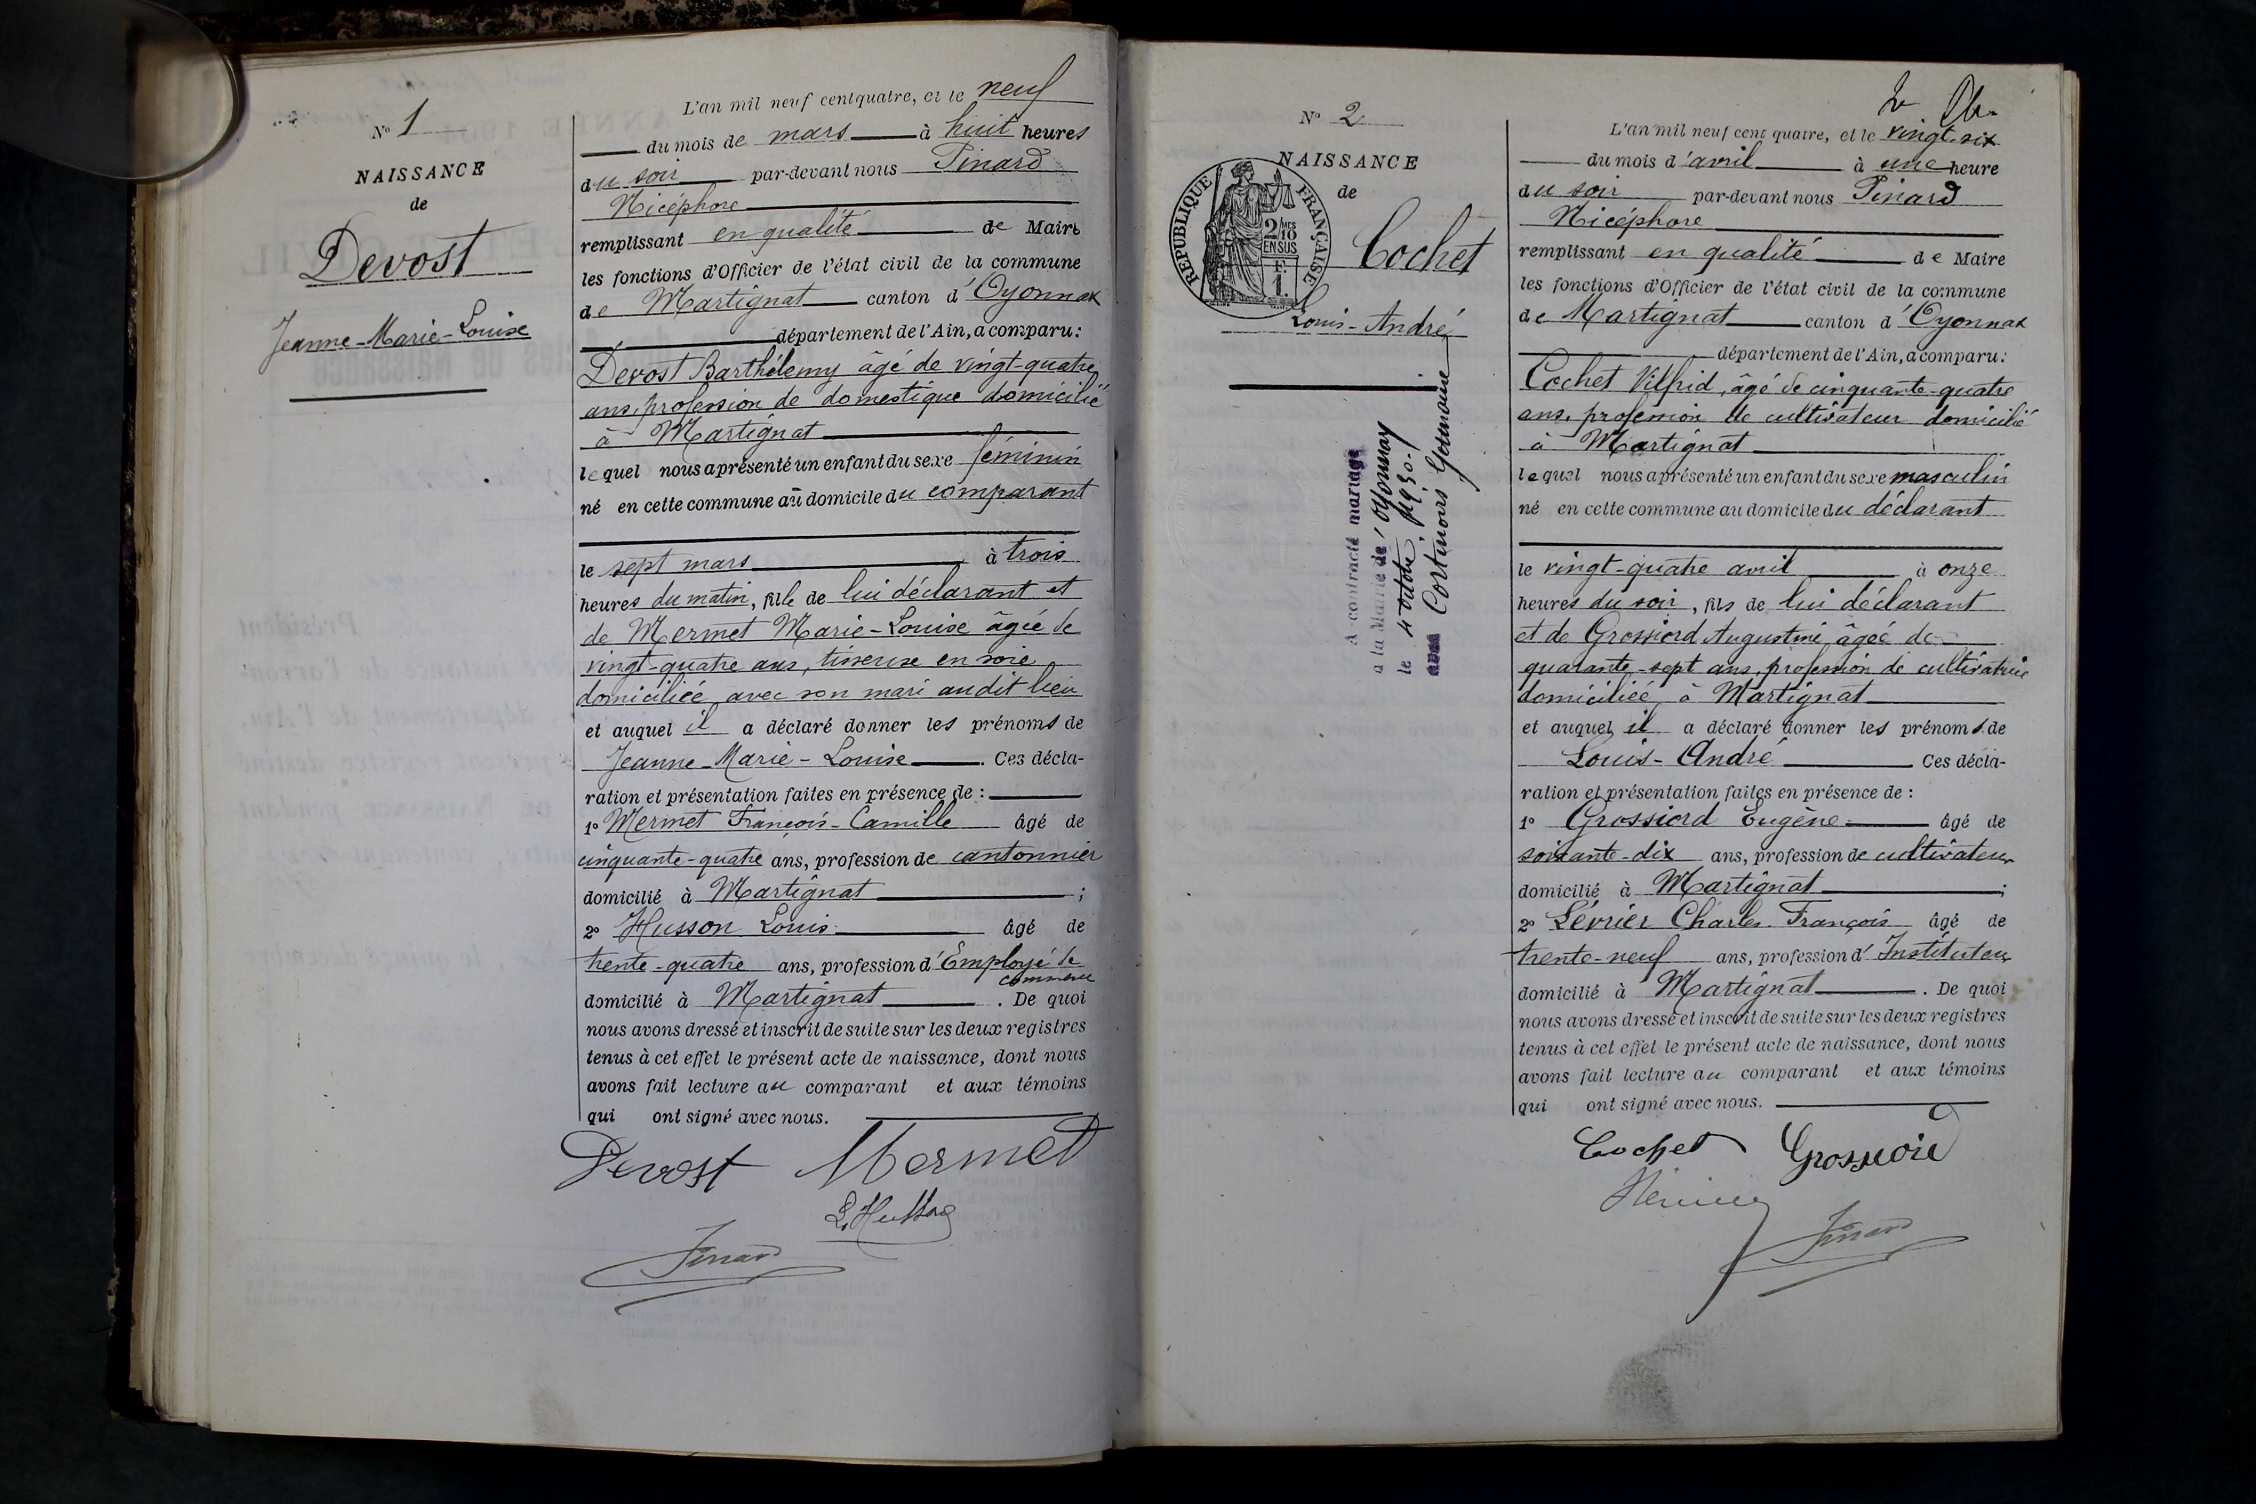 N° 1
NAISSANCE
de
Devost
Jeanne-Marie-Louise
L'an mil neuf cent quatre, et le neuf
du mois de mars à huit heures
du soir par-devant nous Pinard
Nicéphore
remplissant en qualité de Maire
les fonctions d'Officier de l'état civil de la commune
de Martignat canton d'Oyonnax
département de l'Ain, a comparu:
Devost Barthélemy âgé de vingt-quatre
ans, profession de domestique domicilié
à Martignat
lequel nous a présenté un enfant du sexe féminin
né en cette commune au domicile du comparant
le sept mars à trois
heures du matin, fille de lui déclarant et
de Mermet Marie-Louise âgée de
vingt-quatre ans, tisseuse en soie
domiciliée avec son mari audit lieu
et auquel il a déclaré donner les prénoms de
Jeanne-Marie-Louise. Ces décla-
ration et présentation faites en présence de :
1° Mermet François-Camille âgé de
cinquante-quatre ans, profession de cantonnier
domicilié à Martignat ;
2° Husson Louis âgé de
trente-quatre ans, profession d'Employé de
commerce
domicilié à Martignat. De quoi
nous avons dressé et inscrit de suite sur les deux registres
tenus à cet effet le présent acte de naissance, dont nous
avons fait lecture au comparant et aux témoins
qui ont signé avec nous.
Devost Mermet
L. Husson
Pinard
N° 2
NAISSANCE
de
RÉPUBLIQUE FRANÇAISE
2/10 MES
EN SUS
F.
1.
Cochet
Louis-André
A contracté mariage
à la Mairie de Oyonnax
le 4 octobre 1930
avec Cortinois Germaine
L'an mil neuf cent quatre, et le vingt-six
du mois d'avril à une heure
du soir par-devant nous Pinard
Nicéphore
remplissant en qualité de Maire
les fonctions d'Officier de l'état civil de la commune
de Martignat canton d'Oyonnax
département de l'Ain, a comparu:
Cochet Vilfrid, âgé de cinquante-quatre
ans, profession de cultivateur domicilié
à Martignat
lequel nous a présenté un enfant du sexe masculin
né en cette commune au domicile du déclarant
le vingt-quatre avril à onze
heures du soir, fils de lui déclarant
et de Grossiord Augustine, âgée de
quarante-sept ans, profession de cultivatrice
domiciliée à Martignat
et auquel il a déclaré donner les prénoms de
Louis-André Ces décla-
ration et présentation faites en présence de :
1° Grossiord Eugène âgé de
soixante-dix ans, profession de cultivateur
domicilié à Martignat ;
2° Lévrier Charles François âgé de
trente-neuf ans, profession d'Instituteur
domicilié à Martignat. De quoi
nous avons dressé et inscrit de suite sur les deux registres
tenus à cet effet le présent acte de naissance, dont nous
avons fait lecture au comparant et aux témoins
qui ont signé avec nous.
Cochet Grossiord
Pinard